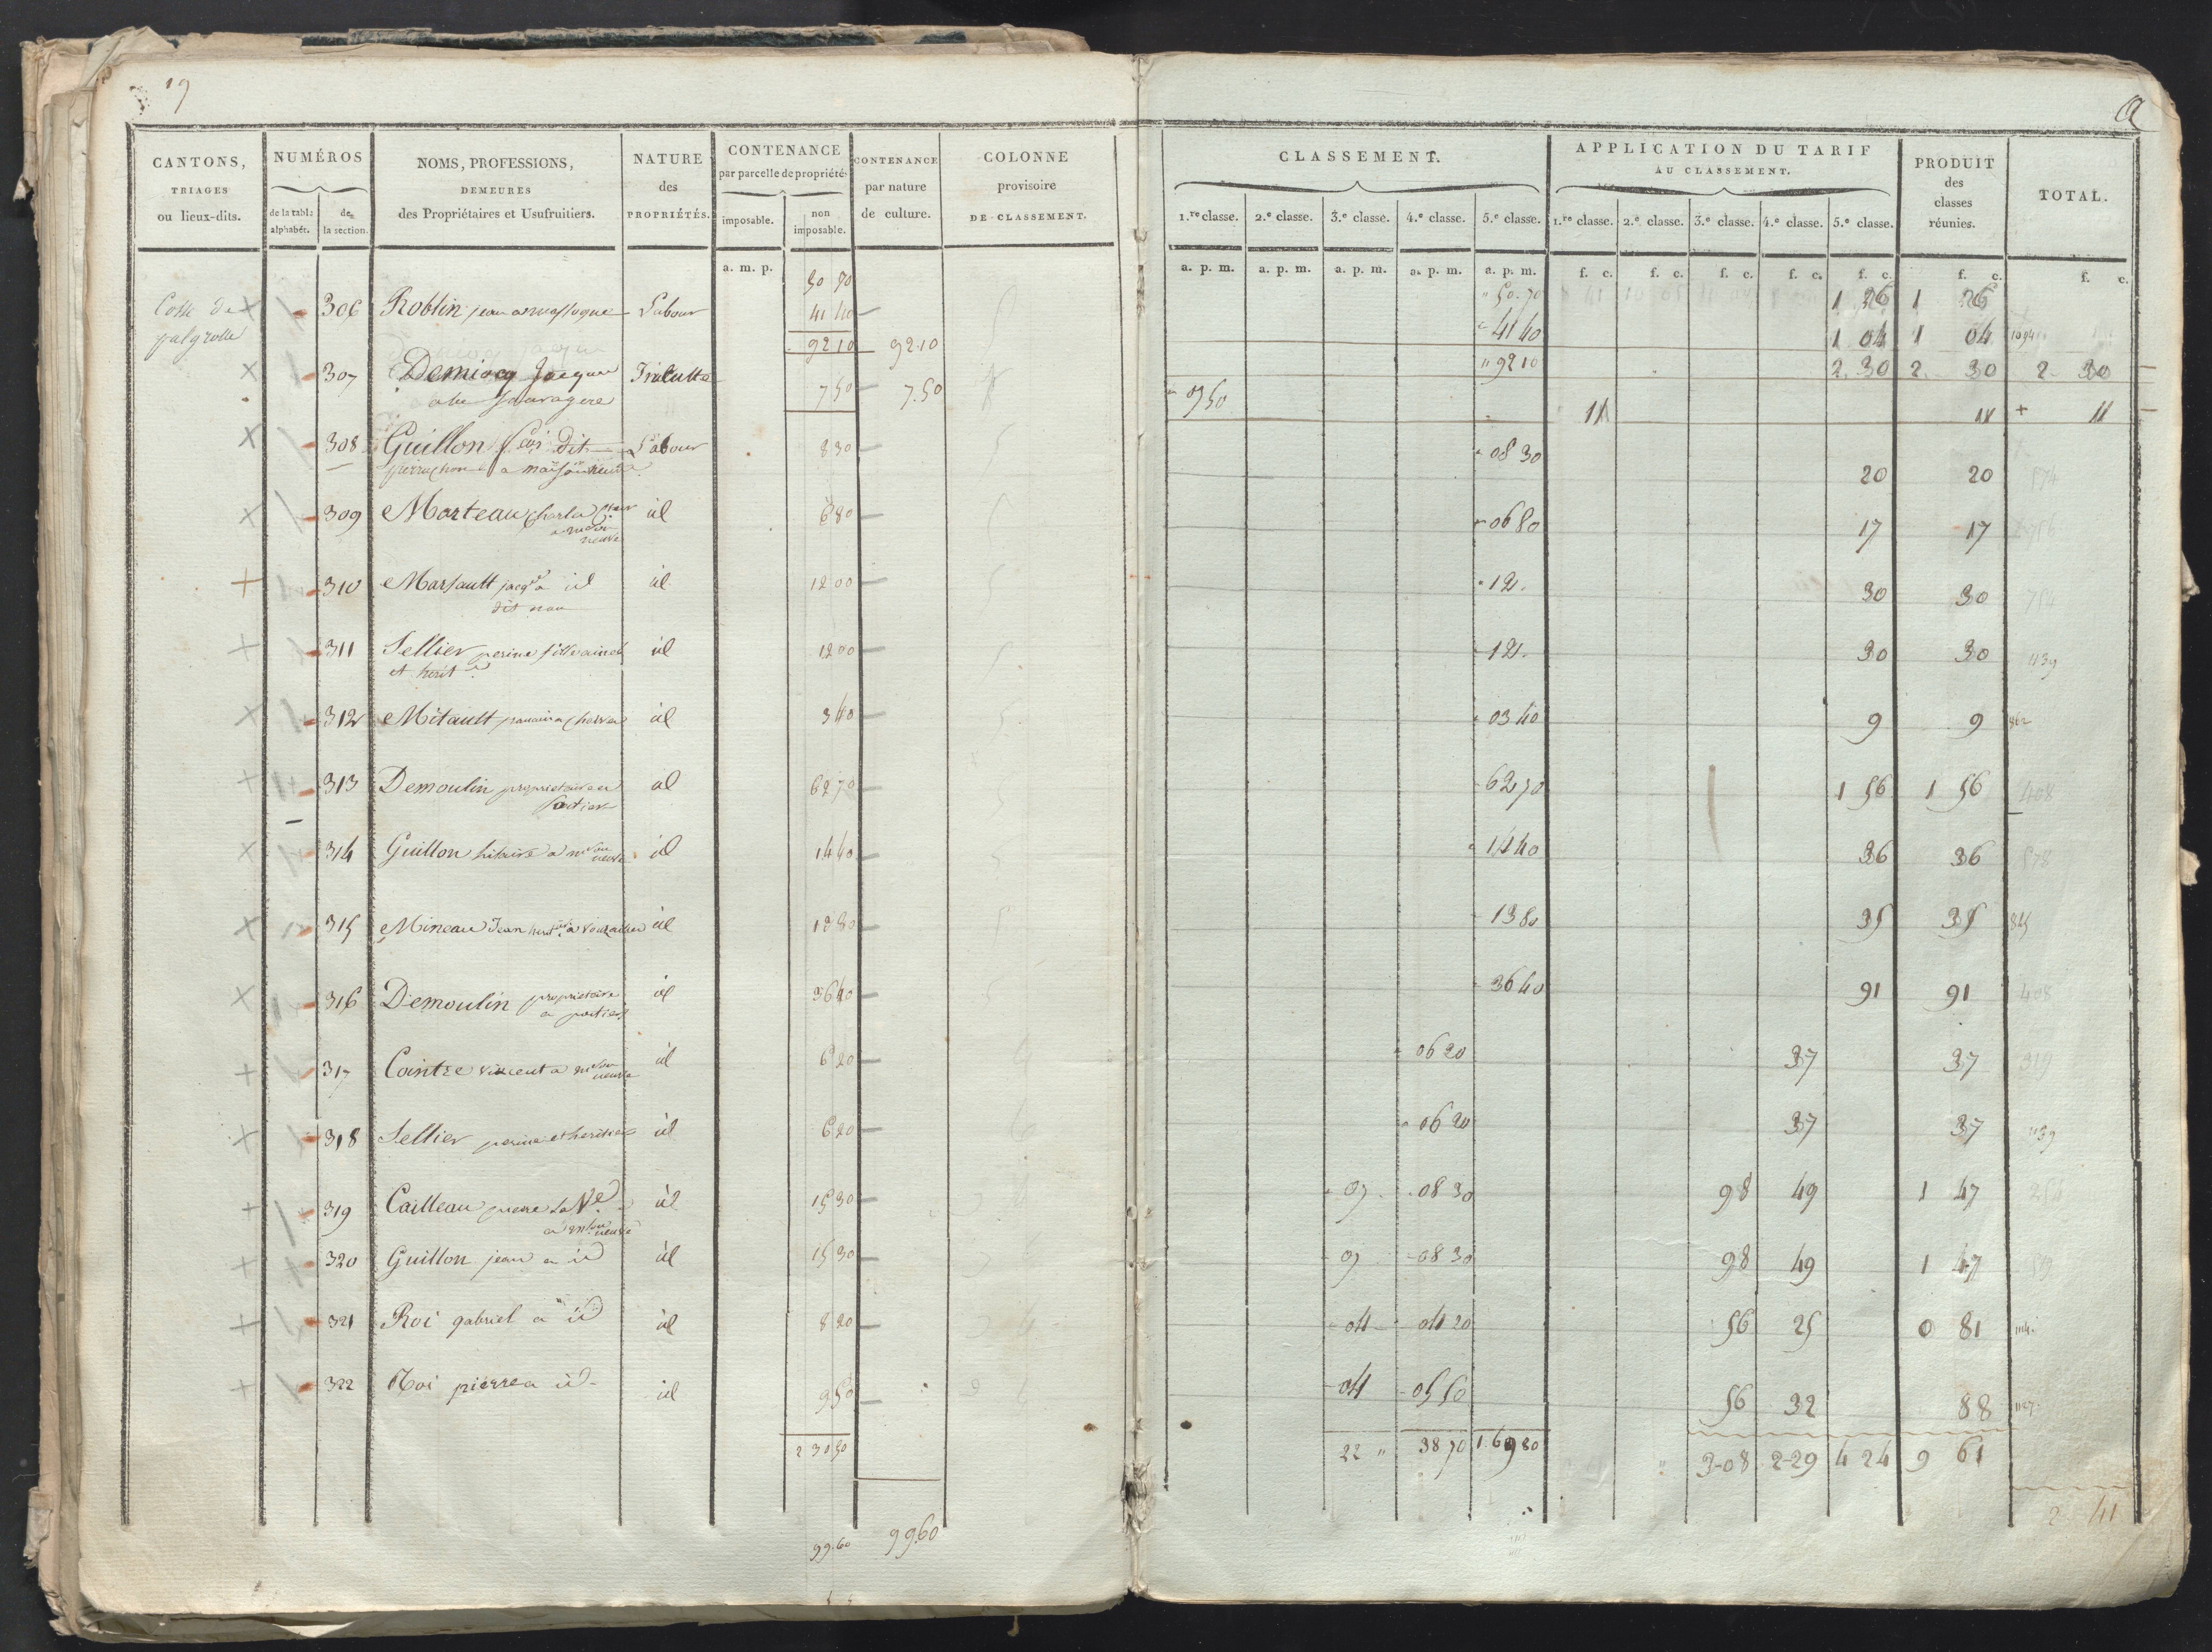 19
CANTONS,
TRIAGES
ou lieux-dits.
NUMÉROS
de la table alphabét.
de la section.
NOMS, PROFESSIONS,
DEMEURES
des Propriétaires et Usufruitiers.
NATURE
des
PROPRIÉTÉS.
CONTENANCE
par parcelle de propriété.
imposable.
non imposable.
CONTENANCE
par nature
de culture.
COLONNE
provisoire
DE CLASSEMENT.
CLASSEMENT.
1.re classe. 2.e classe. 3.e classe. 4.e classe. 5.e classe.
APPLICATION DU TARIF
AU CLASSEMENT.
1.re classe. 2.e classe. 3.e classe. 4.e classe. 5.e classe.
PRODUIT
des
classes
réunies.
TOTAL.
a. m. p.
a. p. m. a. p. m. a. p. m. a. p. m. a. p. m. f. c. f. c. f. c. f. c. f. c. f. c. f. c.
50 70 " 50.70 1 26 1 26
306 Roblin jean Labour 41 40 41 40 1 04 1 04 1094
92 10 92.10 " 92 10 2.30 2. 30 2. 30
307 Demiocq Jacques Inculte 7.50 7.50 07 50 11 11 + 11
308 Guillon dit Labour 8 30 08 30 20 20 574
a maison neuve
309 Marteau Charles id 6 80 06 80 17 17 756
neuve
310 Marsault jacq a id id 12 00 12. 30 30 754
dit
311 Sellier perine fille ainée id 12 00 12. 30 30 1139
et herit
312 Mitault id 3 40 03 40 9 9 862
313 Demoulin proprietaire a id 62 70 62 70 1 56 1 56 408
Poitiers
314 Guillon hilaire a m.on neuve id 14 40 14 40 36 36 578
315 Mineau Jean id 13 80 13 80 35 35 845
316 Demoulin proprietaire id 36 40 36 40 91 91 408
a poitiers
317 Cointre vincent a m.on neuve id 6 20 06 20 37 37 319
318 Sellier perine et heritiers id 6 20 06 20 37 37 1139
319 Cailleau pierre la Ve id 15 30 07 08 30 98 49 1 47 254
a m.on neuve
320 Guillon jean a id id 15 30 07 08 30 98 49 1 47 579
321 Roi gabriel a id id 8 20 04 04 20 56 25 0 81
322 Roi pierre a id id 9 50 04 05 50 56 32 88
2 30 50 22 " 38 70 1.69 80 3-08 2-29 4 24 9 61
99.60 99.60 2 41